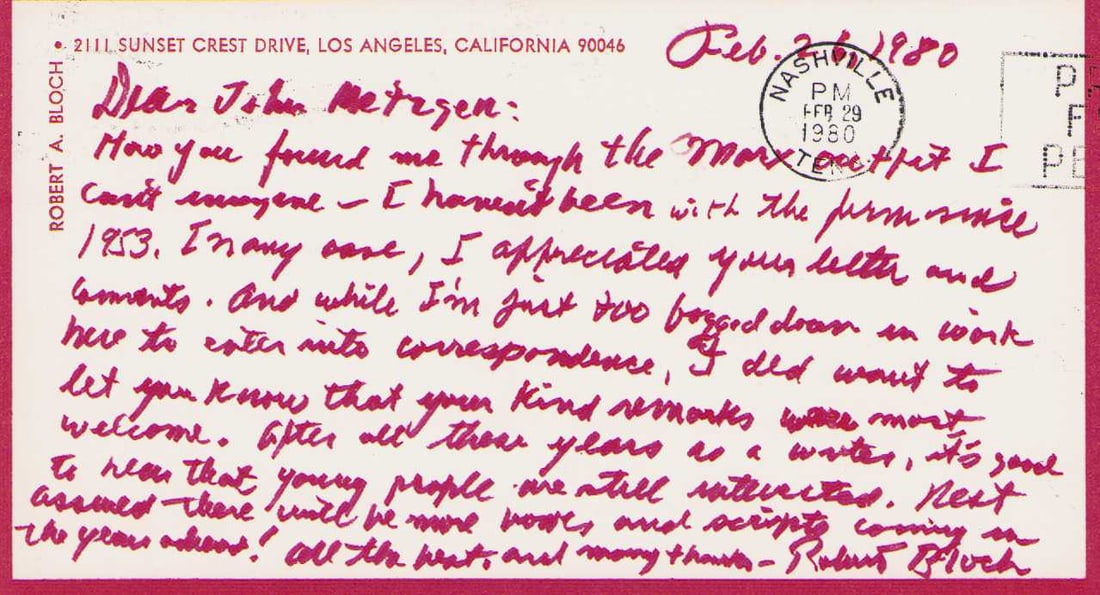 • 2111 SUNSET CREST DRIVE, LOS ANGELES, CALIFORNIA 90046
ROBERT A. BLOCH
Feb. 26, 1980
NASHVILLE
PM
FEB 29
1980
TENN
P
F
PE
Dear John
How you found me through the Marx outfit I
can't imagine – I haven't been with the firm since
1953. In any case, I appreciated your letter and
comments. And while I'm just too bogged down in work
here to enter into correspondence, I did want to
let you know that your kind remarks were most
welcome. After all these years as a writer, it's good
to hear that young people are still interested. Rest
assured – there will be more books and scripts coming in
the years ahead! All the best, and many thanks – Robert Bloch